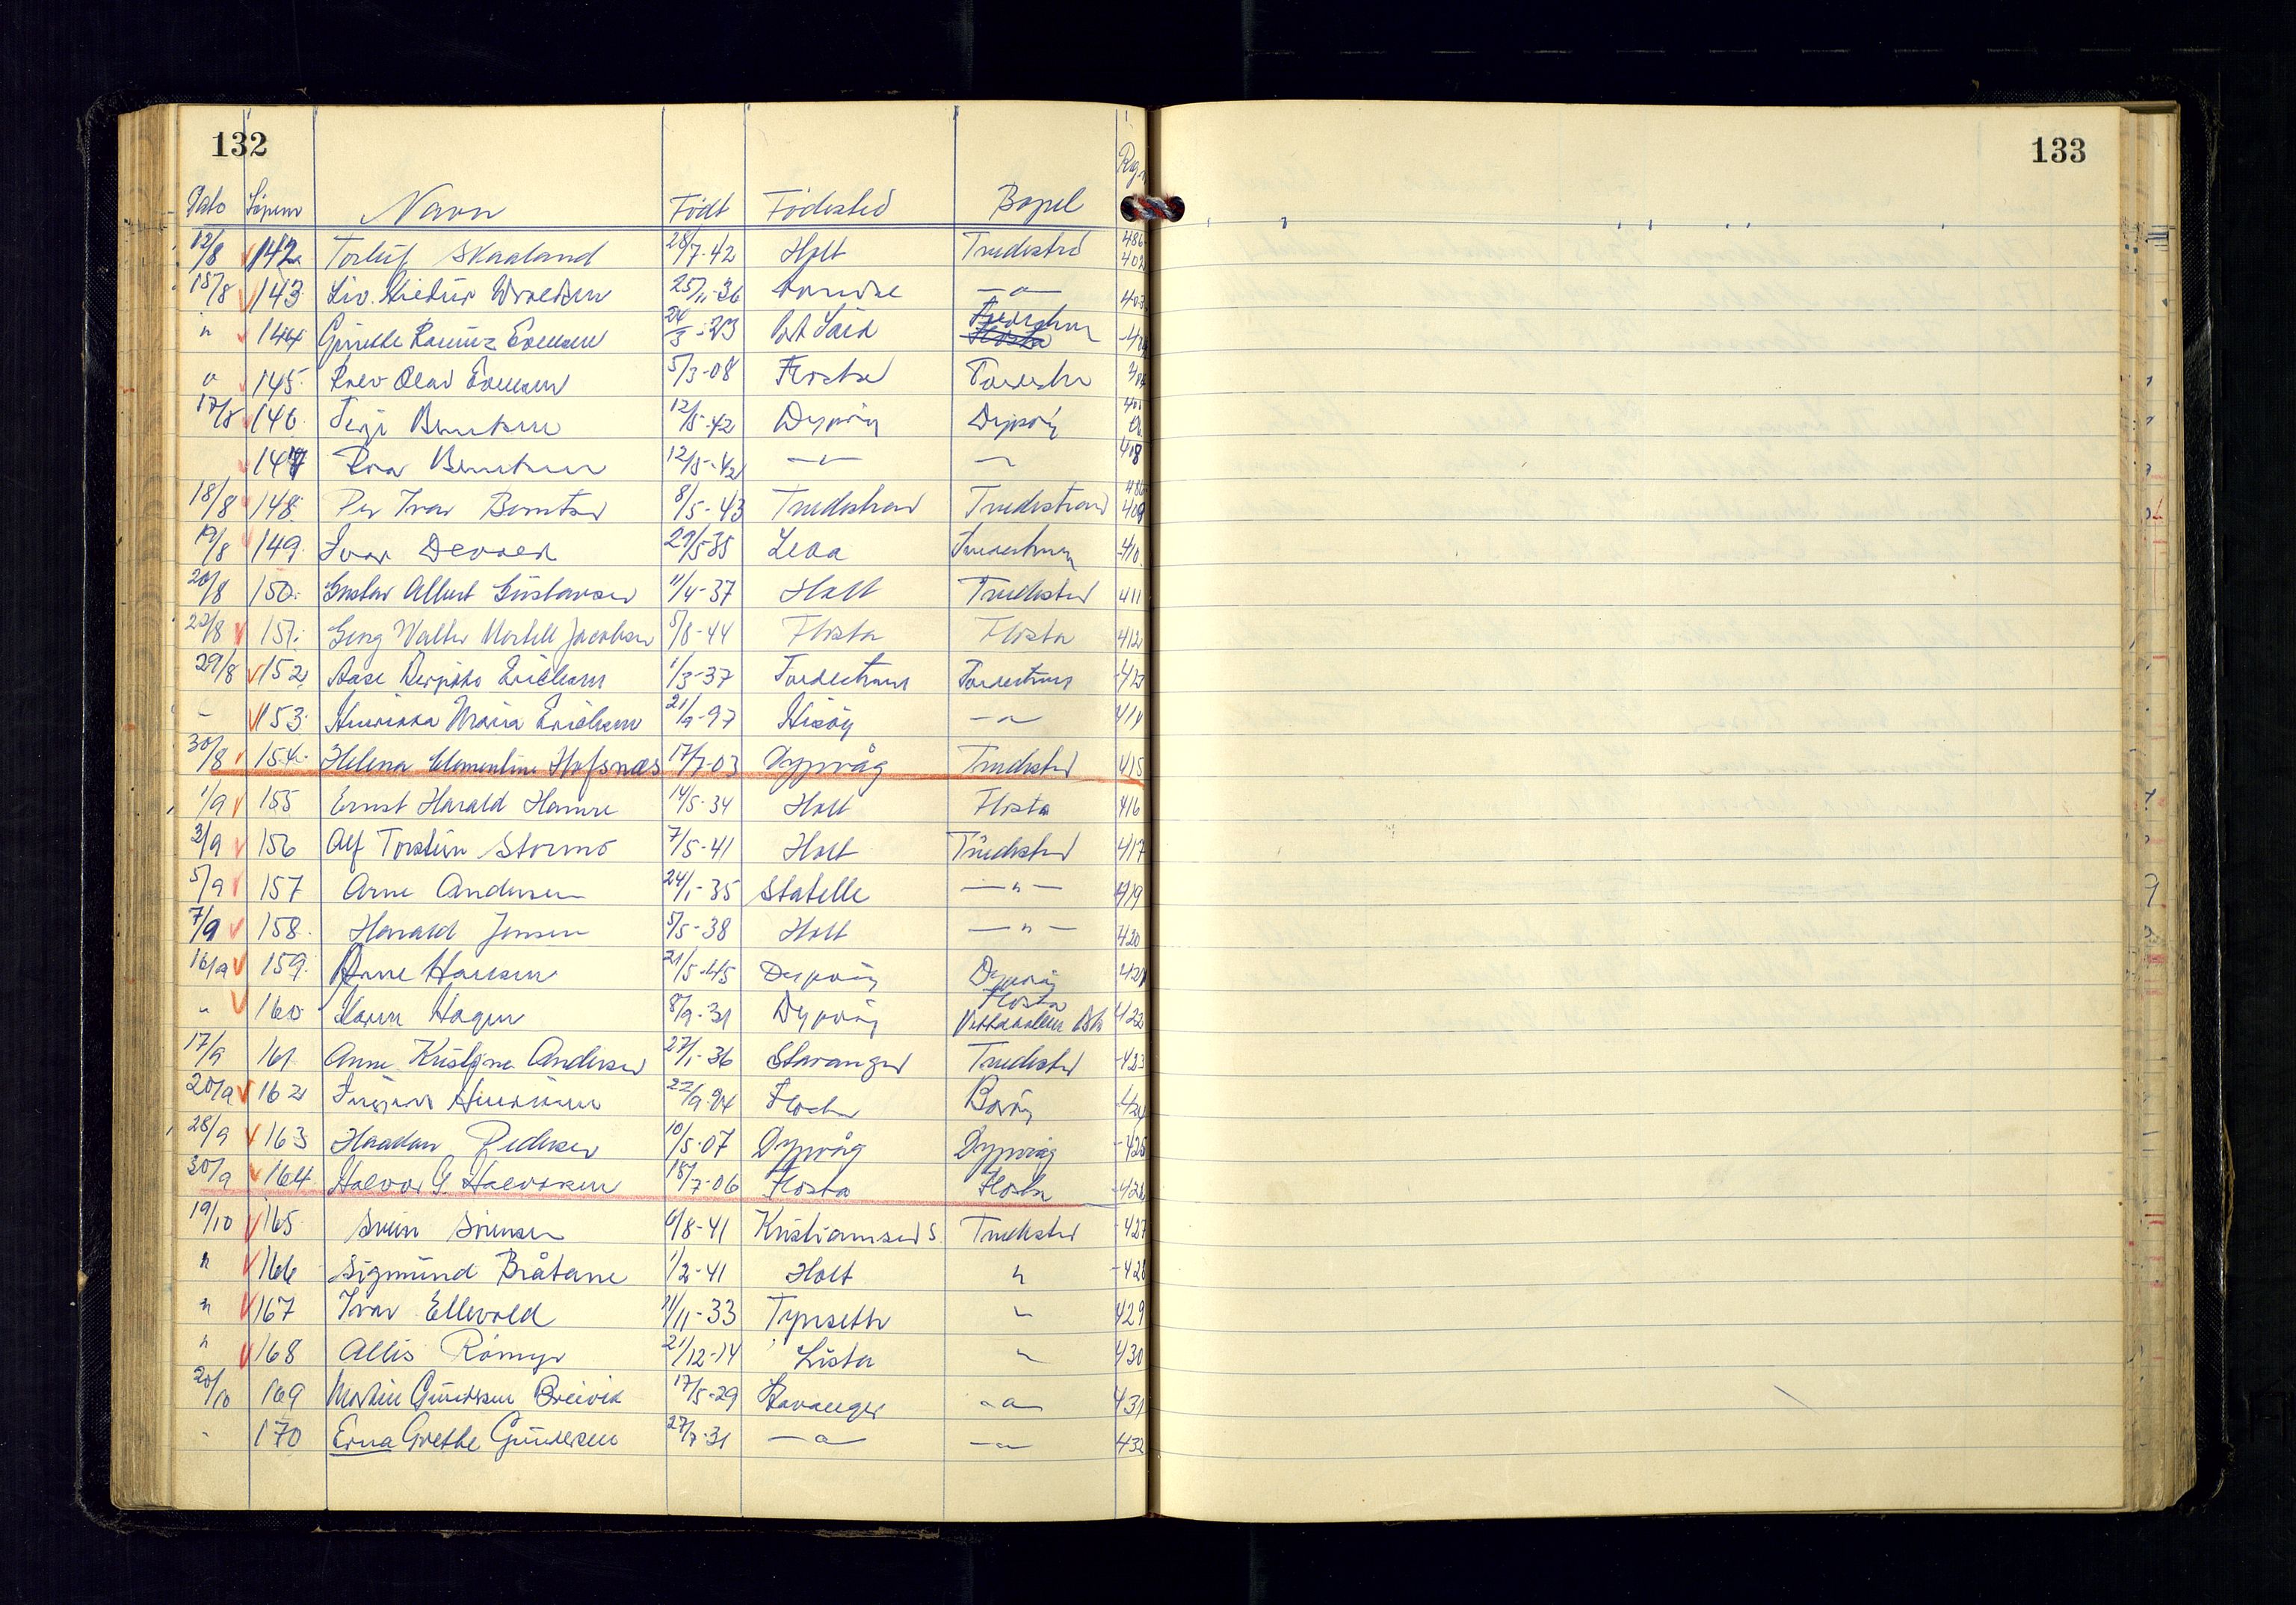 132
133
Dato Løpenr Navn Født Fødested Bopel Reg.n
12/8 142 Torleif Skaaland 28/7-42 Holt Tvedestrd 402
15/8 143. Liv 25/11-36 —"— 403
" 144 20/3-23 Port Said
" 145. Rolv Olav 5/3-08 Flosta
17/8 146. Terje Berntsen 12/5-42 Dypvåg Dypvåg
147 Roar Berntsen 12/5-42 —"— — 408
18/8 148. Per Ivar Berntsen 8/5-43 Tvedestrand Tvedestrand 409
19/8 149. Ivar 29/5-35 Leka Tvedestrand 410
20/8 150. Gustav Albert Gustavsen 11/4-37 Holt Tvedestrd 411
22/8 151. Georg Walter Jacobsen 5/8-44 Flosta Flosta 412
29/8 152 Aase Ericksen 1/3-37 Tvedestrand Tvedestrand 413
— 153. Maria Ericksen 21/9-97 Hisøy —"— 414
30/8 154. Helena Clementine Hofsnæs 17/7-03 Dypvåg Tvedestrd 415
1/9 155 Ernst Harald Hamre 14/5-34 Holt Flosta 416
3/9 156 Alf Torstein Stormo 7/5-41 Holt Tvedestrd 417
5/9 157 Arne Andersen 24/1-35 Stathelle —"— 419
7/9 158. Harald Jensen 5/5-38 Holt —"— 420
16/9 159. Anne Hansen 21/5-45 Dypvåg Dypvåg 421
" 160. Karen Hagen 8/9-31 Dypvåg Flosta 422
17/9 161 Anne Kristine Andersen 27/1-36 Stavanger Tvedestrd 423
20/9 162 22/9-24 Borøy 424
28/9 163 Haakon Pedersen 10/5-07 Dypvåg Dypvåg 425
30/9 164. Halvor G. Halvorsen 18/7-06 Flosta Flosta 426
19/10 165 Svein Sørensen 6/8-41 Kristiansand S. Tvedestrd 427
" 166 Sigmund Bråtane 1/2-41 Holt " 428
" 167 Ivar Ellevold 11/11-33 Tynseth " 429
" 168 Allis Römyr 21/12-14 Lista " 430
20/10 169 Martin Gundersen Breivik 17/5-29 Stavanger —"— 431
" 170 Erna Grethe Gundersen 27/7-31 —"— —"— 432